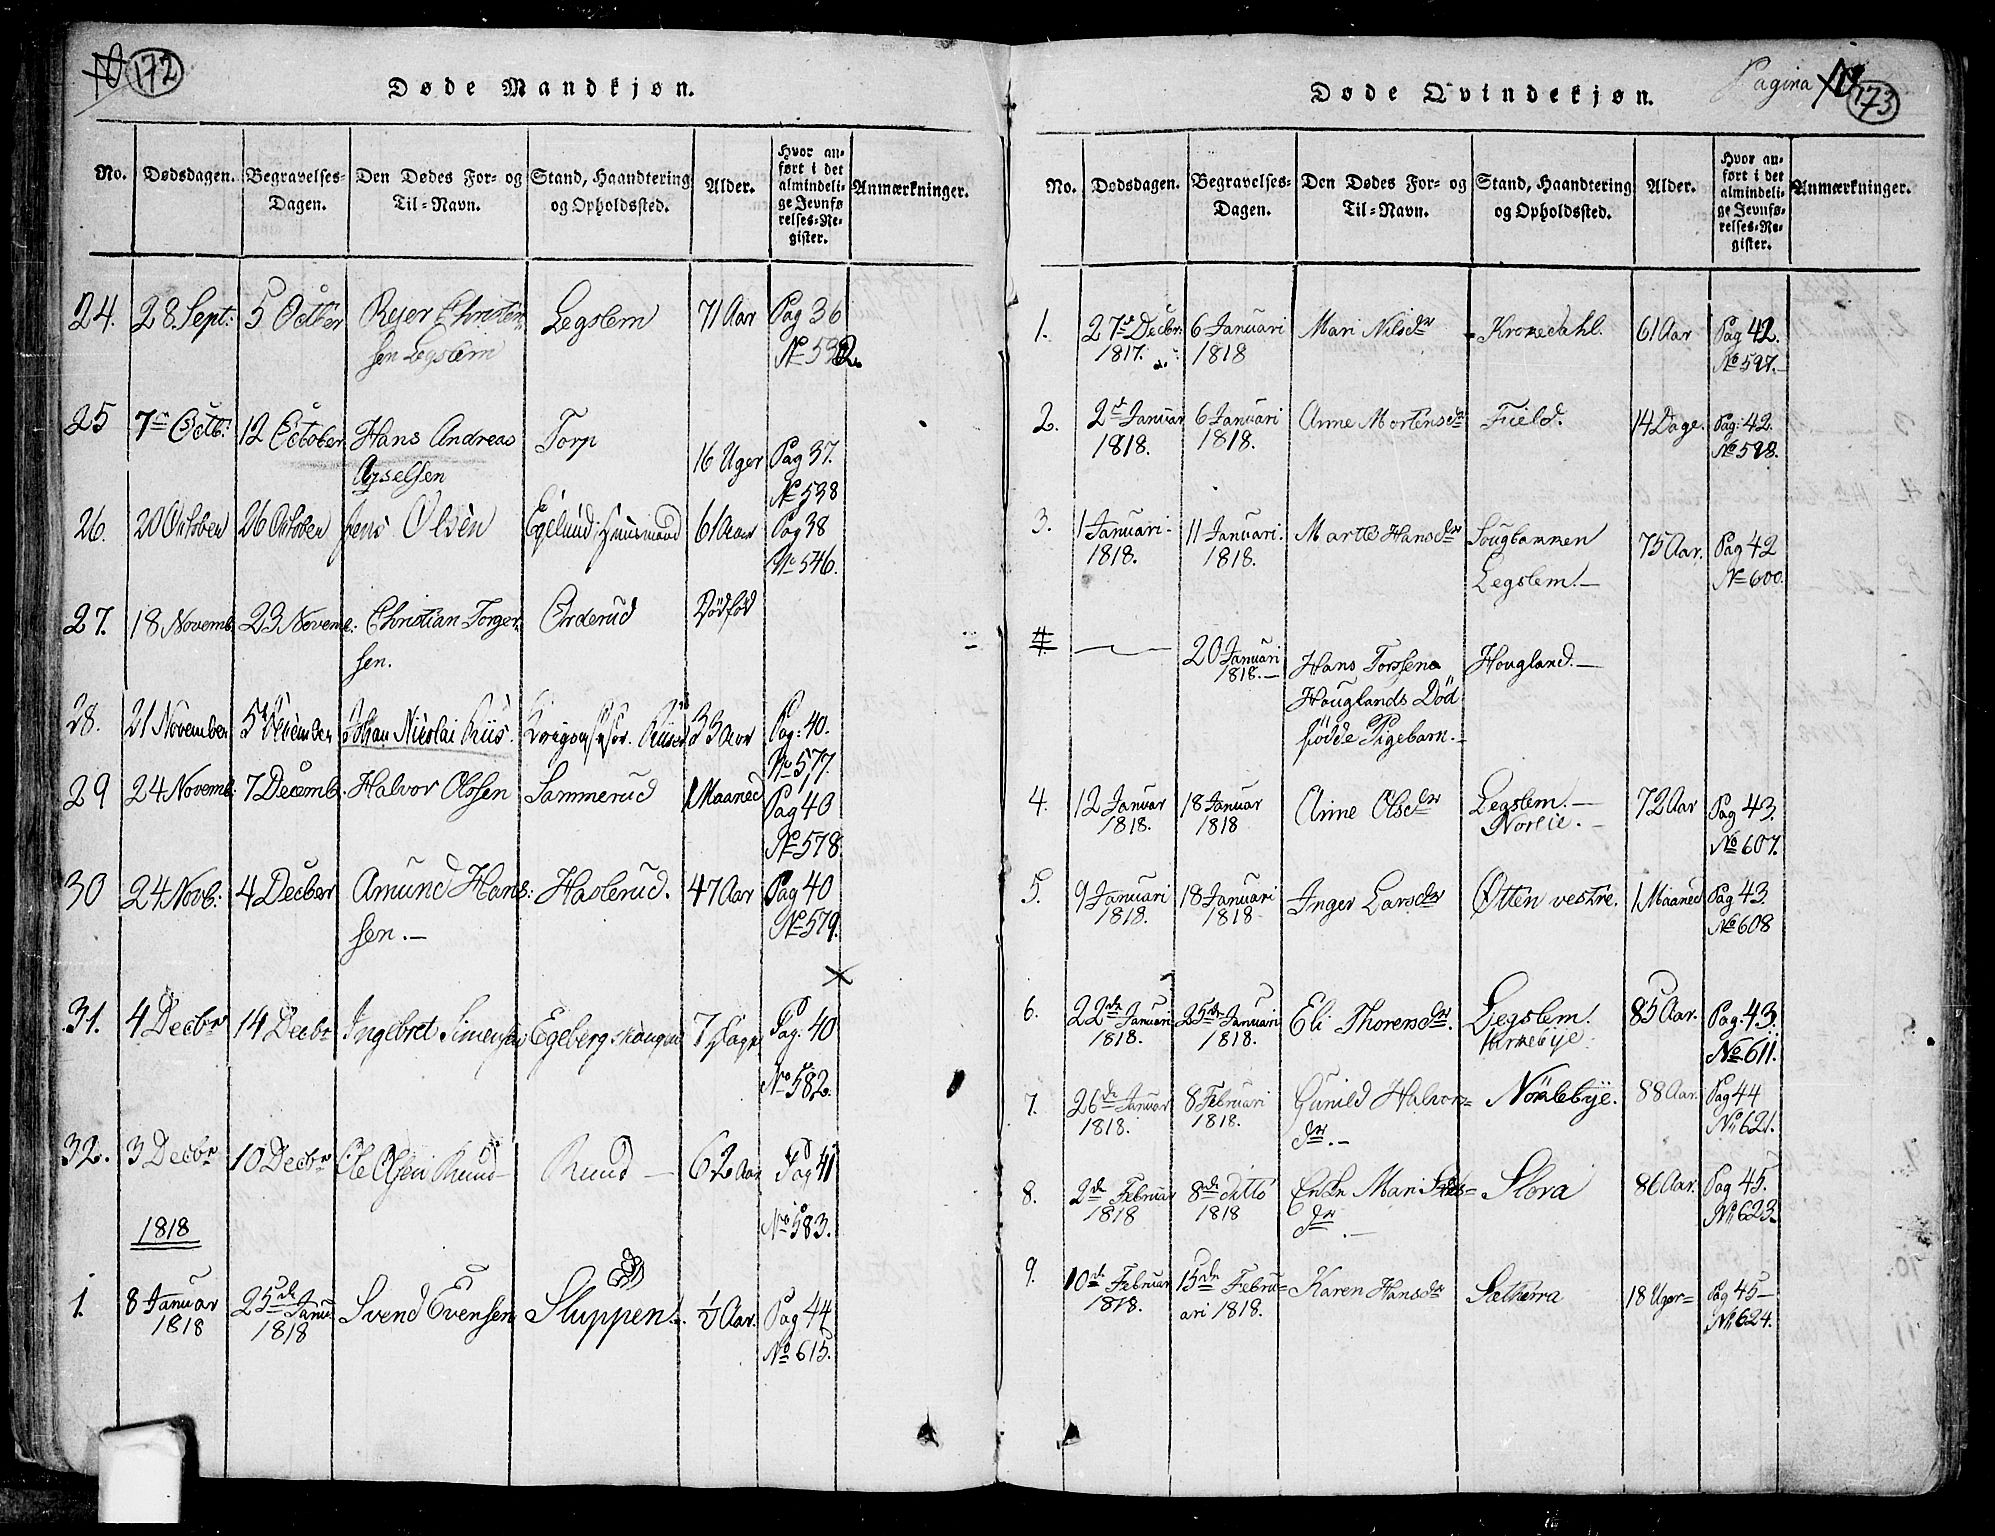 172
Døde Mandkjøn.
No. Dødsdagen. Begravelses-Dagen. Den Dødes For- og Til-Navn. Stand, Haandtering og Opholdssted. Alder. Hvor anført i det almindelige Jevnførelses-Register. Anmærkninger.
24. 28. Sept: 5 Octber Rejer Christen: Legslem 71 Aar Pag 36
sen Legslem No 532.
25 7de Octb: 12 October Hans Andreas Torp 16 Uger Pag 37.
Axselsen No 538
26. 20 October 26 October Jens Olsen Egelund Huusmand 61 Aar Pag 38
No 546.
27. 18 Novemb 23 Novem: Christian Torger: Orderud Dödföd
sen.
28. 21 November 5 December Johan Nicolai Riis. 33 Aar Pag: 40.
No 577.
29 24 Novemb: 7 Decemb. Halvor Olssen Sammerud 1 Maaned Pag 40
No 578
30 24 Novb: 4 Decber Amund Hans: Haslerud. 47 Aar Pag 40
sen.— No 579.
31. 4 Decbr 14 Decbr Ingebret Simensen Egeberg 7 Dage Pag: 40
No 582.
32. 3 Decbr 10 Decbr Ole Olsen Ruud— Ruud — 62 Aar Pag 41
No 583.
1818
1. 8 Januar 25de Janu: Svend Evensen Sluppen. ½ Aar. Pag 44
1818 1818 No 615.
Pagina 173
Døde Qvindekjøn.
No. Dødsdagen. Begravelses-Dagen. Den Dødes For- og Til-Navn. Stand, Haandtering og Opholdssted. Alder. Hvor anført i det almindelige Jevnførelses-Register. Anmærkninger.
1. 27de Decbr. 6 Januari Mari Nilsdr Krokedahl. 61 Aar Pag 42.
1817. 1818 No 597.
2. 2d Januar 6 Januari Anne Mortensdr Field. 14 Dage. Pag: 42.
1818. 1818. No 598.
3. 1 Januari. 11 Januari. Marte Hansdr Sougbakken 75 Aar. Pag 42
1818. 1818. Legslem.— No 600.
4. — 20 Januari Hans Torssens Hougland.—
1818.— Houglands Död
födde Pigebarn.—
4. 12 Januar 18 Januar Anne Olsdr Legslem.— 72 Aar Pag 43.
1818. 1818 Norlie. No 607.
5. 9 Januari 18 Januari Inger Larsdr Otten vestre. 1 Maaned Pag 43.
1818. 1818 No 608
6. 22de Januari 25de Januari Eli Thorensdr. Legslem. 85 Aar. Pag. 43.
1818. 1818. Kirkebÿe. No 611.
7. 26de Januar 8 Februari Gunild Halvors= Nöklebÿe. 88 Aar. Pag 44
1818. 1818. dr.— No 621.
8. 2de Februar 8de Ditto Enkn Mari Slora 86 Aar. Pag 45.
1818 1818 dr.— No 623.
9. 10de Februar 15de Febru= Karen Hansdr Sætherra 18 Uger= Pag 45—
1818. ari 1818. No 624.